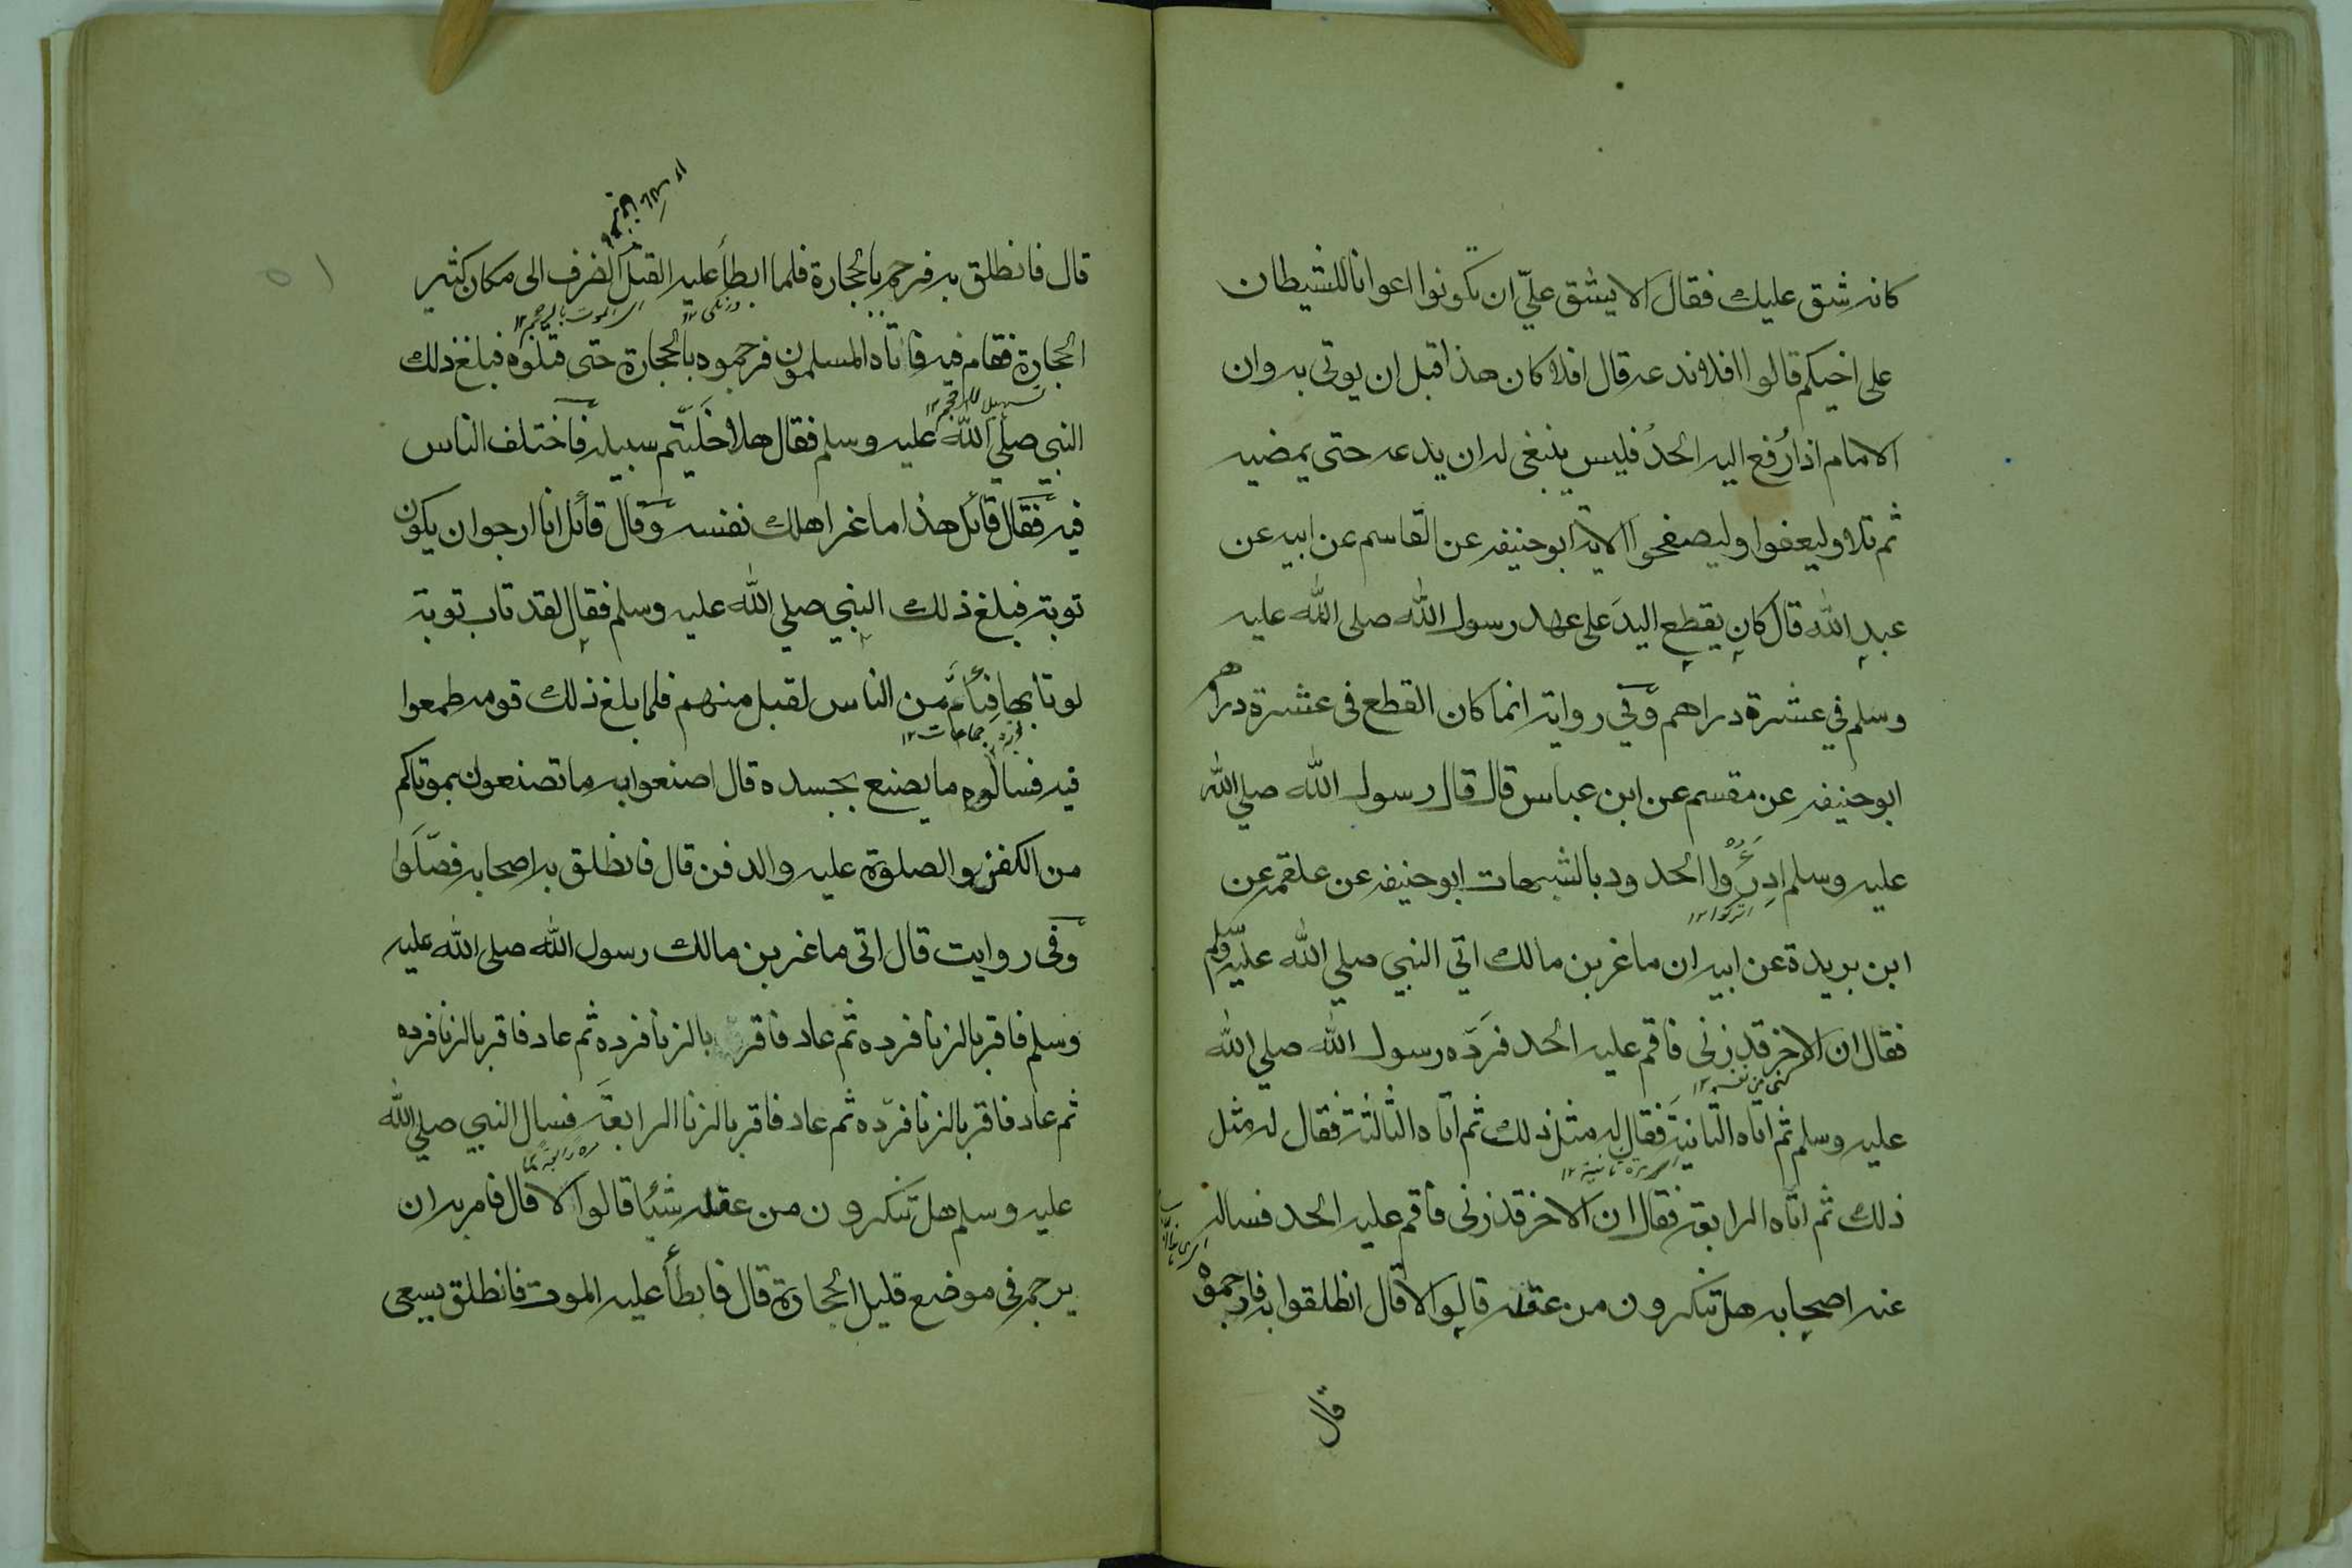 كانه شق عليك فقال الا يشق عليّ ان تكونوا اعوانا للشيطان
على اخيكم قالوا افلا ندعه قال افلا كان هذا قبل ان يوتى به وان
الامام اذا رُفع اليه الحدُ فليس ينبغى له ان يدعه حتى يمضيه
ثم تلا وليعفوا وليصفحوا الاية ابو حنيفه عن القاسم عن ابيه عن
عبدِ الله قال كان يقطع اليدَ على عهد رسول الله صلى الله عليه
وسلم في عشرة دراهم وفي رواية انما كان القطع فى عشرة دراهم
ابو حنيفه عن مقسم عن ابن عباس قال قال رسول الله صلي الله
عليه وسلم ادرَءُوا الحدود بالشبهات ابو حنيفه عن علقمه عن
اتركوا ١٢
ابن بريدة عن ابيه ان ماغر بن مالك اتي النبي صلي الله عليه وسلم
فقال ان الاخر قد زنى فاقم عليه الحد فَردّه رسول الله صلي الله
كنى عن نفسه ١٢
عليه وسلم ثم اتاه الثانيةَ فقال له مثل ذلك ثم اتاه الثالثة فقال له مثل
اى مرة ثانية ١٢
ذلك ثم اتاه الرابعة فقال ان الاخر قد زنى فاقم عليه الحد فسال
عنه اصحابه هل تنكرون من عقله قالوا لا قال انطلقوا به فارجموه
قال
قال فانطلق به فرجم بالحجارة فلما ابطأ عليه القتل انصرف الى مكان كثير
اى الموت بالرجم ١٢
الحجارة فقام فيه فاتاه المسلمون فرجموه بالحجارة حتى قتلوه فبلغ ذلك
النبي صلي الله عليه وسلم فقال هلا خَلَّيتم سبيله فاختلف الناس
فيه فقال قائل هذا ماغر اهلك نفسه وقال قائل انا ارجوا ن يكون
توبة فبلغ ذلك النبي صلي الله عليه وسلم فقال لقد تاب توبة
لو تاب بها فِئامٌ من الناس لقبل منهم فلما بلغ ذلك قومه طمعوا
جماعات ١٢
فيه فسالوه ما يصنع بجسده قال اصنعوا به ما تصنعون بموتاكم
من الكفن والصلوة عليه والدفن قال فانطلق به اصحابه فصَلَّوا
وفى روايت قال اتى ماغر بن مالك رسول الله صلى الله عليه
وسلم فاقر بالزنا فرده ثم عاد فاقر بالزنا فرده ثم عاد فاقر بالزنا فرده
ثم عاد فاقر بالزنا فردّه ثم عاد فاقر بالزنا الرابعةَ فسال النبي صلي الله
عليه وسلم هل تنكرون من عقله شيئا قالوا لا قال فامر به ان
يرجم فى موضع قليل الحجارة قال فابطأ عليه الموت فانطلق يسعى